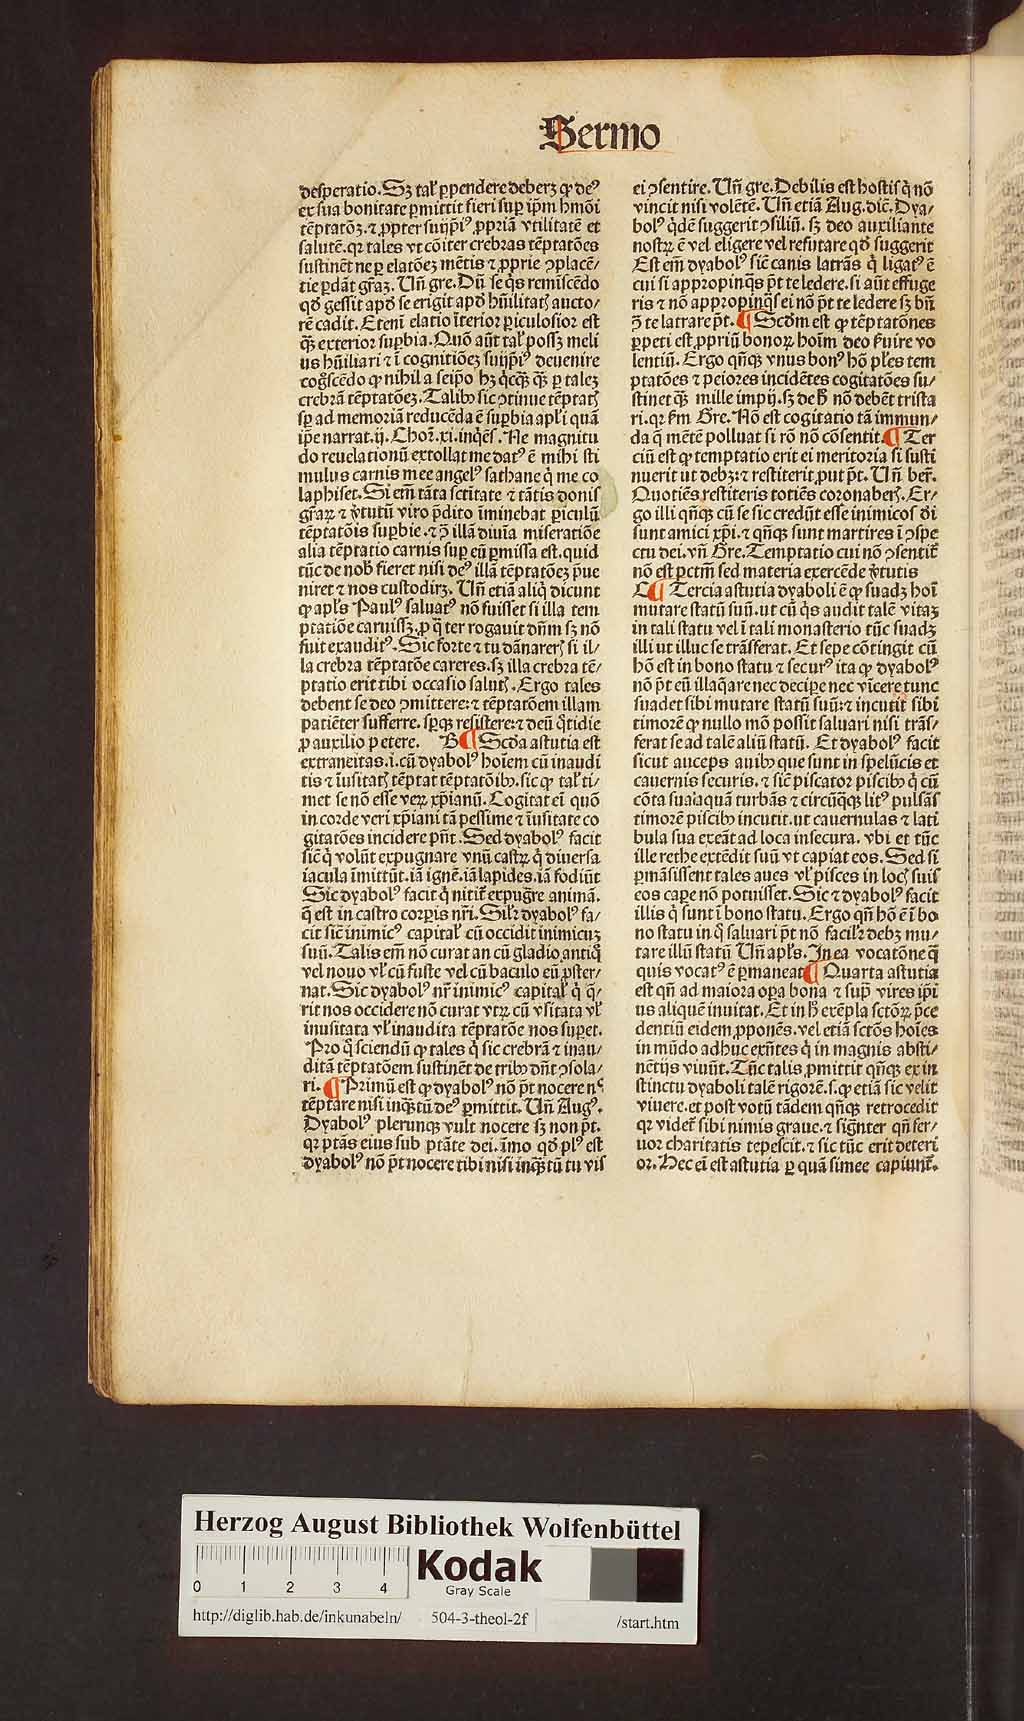 Sermo
desperatio. Sꝫ tal' ꝑpendere deberꝫ ꝙ deꝰ
ex sua bonitate ꝑmittit fieri suꝑ ip̄m hmōi
tēptatōꝫ. ⁊ ꝓpter suijp̄iꝰ ꝓpriā vtilitatē et
salutē. qꝛ tales vt cōiter crebras tēptatōes
sustinēt ne ꝑ elatōeꝫ mētis ⁊ ꝓprie ꝯplacē/
tie ꝑdāt gr̄aꝫ. Un̄ gre. Dū se q̇s remiscēdo
qd̓ gessit apd̓ se erigit apd̓ hūilitatꝭ aucto/
rē cadit. Eteni elatio īterior ꝑiculosior est
qꝫ̄ exterior suꝑbia. Quō aūt tal' possꝫ meli
us hūiliari ⁊ ī cognitiōeꝫ suijp̄iꝰ deuenire
cogn̄scēdo ꝙ nihil a seip̄o hꝫ q̇cqꝫ̄ qꝫ̄ ꝑ taleꝫ
crebrā tēptatōeꝫ. Talibꝰ sic ꝯtinue tēptatꝭ
sꝑ ad memoriā reducēda ē suꝑbia apl'i quā
ip̄e narrat. ij. Choꝝ. xi. inq̇ēs. Ne magnitu
do reuelationū extollat me datꝰ ē mihi sti
mulus carnis mee angelꝰ sathane q̇ me co
laphiset. Si em̄ tāta sctitate ⁊ tātis donis
gr̄aꝝ ⁊ v̓tutū viro p̄dito īminebat ꝑiculū
tēptatōis suꝑbie. ⁊ ꝯ̄ illā diuīa miseratiōe
alia tēptatio carnis suꝑ eū ꝑmissa est. quid
tūc de nob̓ fieret nisi deꝰ illā tēptatōeꝫ p̄ue
niret ⁊ nos custodirꝫ. Un̄ etiā aliq̇ dicunt
ꝙ apl's Paulꝰ saluatꝰ nō fuisset si illa tem
ptatiōe caruissꝫ. ꝓ q̄ ter rogauit dn̄m sꝫ nō
fuit exauditꝰ. Sic forte ⁊ tu dānareꝭ si il/
la crebra tēptatōe careres. sꝫ illa crebra tē/
ptatio erit tibi occasio salutꝭ. Ergo tales
debent se deo ꝯmittere: ⁊ tēptatōem illam
patiēter sufferre. sꝑqꝫ resistere: ⁊ deū q̇tidie
ꝓ auxilio petere. B ¶ Scd̓a astutia est
extraneitas. i. cū dyabolꝰ hoīem cū inaudi
tis ⁊ īusitatꝭ tēptat tēptatōibꝰ. sic ꝙ tal' ti/
met se nō esse veꝝ xp̄ianū. Cogitat ei quō
in corde veri xp̄iani tā pessime ⁊ īusitate co
gitatōes incidere pn̄t. Sed dyabolꝰ facit
sic̄ q̇ volūt expugnare vnū castꝝ q̇ diuersa
iacula īmittūt. iā ignē. iā lapides. iā fodiūt
Sic dyabolꝰ facit q̇ nitit̄ expugr̄e animā.
q̄ est in castro corꝑis nr̄i. Sil'r dyabolꝰ fa/
cit sic̄ inimicꝰ capital' cū occidit inimicuꝫ
suū. Talis em̄ nō curat an cū gladio antiq̊
vel nouo vl' cū fuste vel cū baculo eū ꝓster/
nat. Sic dyabolꝰ nr̄ inimicꝰ capital' q̇ q̄/
rit nos occidere nō curat vtꝝ cū vsitata vl'
inusitata vl' inaudita tēptatōe nos suꝑet.
Pro q̊ sciendū ꝙ tales q̇ sic crebrā ⁊ inau/
ditā tēptatōem sustinēt de tribꝰ dn̄t ꝯsola/
ri. ¶ Primū est ꝙ dyabolꝰ nō pōt nocere nꝭ
tēptare nisi inqꝫ̄tū deꝰ ꝑmittit. Un̄ Augꝰ.
Dyabolꝰ plerunqꝫ vult nocere sꝫ non pōt.
qꝛ ptās eius sub ptāte dei. īmo qd̓ plꝰ est
dyabolꝰ nō pōt nocere tibi nisi inqꝫ̄tū tu vis
ei ꝯsentire. Un̄ gre. Debilis est hostis q̇ nō
vincit nisi volētē. Un̄ etiā Aug. dic̄. Dya/
bolꝰ q̇dē suggerit ꝯsiliū. sꝫ deo auxiliante
nostꝝ ē vel eligere vel refutare qd̓ suggerit
Est em̄ dyabolꝰ sic̄ canis latrās q̇ ligatꝰ ē
cui si appropinq̇s pōt te ledere. si aūt effuge
ris ⁊ nō appropinq̇s ei nō pōt te ledere sꝫ bn̄
ꝯ̄ te latrare pōt. ¶ Scd̓m est ꝙ tēptatōnes
ꝑpeti est ꝓpriū bonoꝝ hoīm deo ẜuire vo
lentiū. Ergo qn̄qꝫ vnus bonꝰ hō pl'es tem
ptatōes ⁊ peiores incidētes cogitatōes su/
stinet qꝫ̄ mille impij. sꝫ de h̓ nō debēt trista
ri. qꝛ ẜm Gre. Nō est cogitatio tā immun/
da q̄ mētē polluat si rō nō cōsentit. ¶ Ter
ciū est ꝙ temptatio erit ei meritoria si susti
nuerit ut debꝫ: ⁊ restiterit ꝓut pōt. Un̄ ber.
Quotiēs restiteris totiēs coronabeꝭ. Er/
go illi qn̄qꝫ cū se sic credūt esse inimicos di
sunt amici xp̄i. ⁊ qn̄qꝫ sunt martires ī ꝯspe
ctu dei. vn̄ Gre. Temptatio cui nō ꝯsentit̄
nō est pctm̄ sed materia exercēde v̓tutis
C ¶ Tercia astutia dyaboli ē ꝙ suadꝫ hoī
mutare statū suū. ut cū q̇s audit talē vitaꝫ
in tali statu vel ī tali monasterio tūc suadꝫ
illi ut illuc se trāsferat. Et sepe cōtingit cū
hō est in bono statu ⁊ securꝰ ita ꝙ dyabolꝰ
nō pōt eū illaq̄are nec deciꝑe nec vīcere tunc
suadet sibi mutare statū suū: ⁊ incutit sibi
timorē ꝙ nullo mō possit saluari nisi trās/
ferat se ad talē aliū statū. Et dyabolꝰ facit
sicut auceps auibꝰ que sunt in spelūcis et
cauernis securis. ⁊ sic̄ piscator piscibꝰ q̇ cū
cōta sua aquā turbās ⁊ circūq̇qꝫ litꝰ pulsās
timorē piscibꝰ incutit. ut cauernulas ⁊ lati
bula sua exeāt ad loca insecura. vbi et tūc
ille rethe extēdit suū vt capiat eos. Sed si
ꝑmāsissent tales aues vl' pisces in locꝭ suis
eos caꝑe nō potuisset. Sic ⁊ dyabolꝰ facit
illis q̇ sunt ī bono statu. Ergo qn̄ hō ē ī bo
no statu in q̊ saluari pōt nō facil'r debꝫ mu/
tare illū statū Un̄ apl's. In ea vocatōne q̄
quis vocatꝰ ē ꝑmaneat ¶ Quarta astutia
est qn̄ ad maiora oꝑa bona ⁊ supͣ vires ip̄i
us aliquē inuitat. Et in h̓ exēpla sctōꝝ p̄ce
dentiū eidem ꝓponēs. vel etiā sctōs hoīes
in mūdo adhuc exn̄tes q̇ in magnis absti/
nētijs viuūt. Tūc talis ꝓmittit qn̄qꝫ ex in
stinctu dyaboli talē rigorē. s. ꝙ etiā sic velit
viuere. et post votū tādem qn̄qꝫ retrocedit
qꝛ videt̄ sibi nimis graue. ⁊ signter qn̄ fer/
uor charitatis tepescit. ⁊ sic tūc erit deteri
or. Hec ei est astutia ꝑ quā simee capiunt̄.
Herzog August Bibliothek Wolfenbüttel
0 1 2 3 4
Kodak
Gray Scale
http://diglib.hab.de/inkunabeln/ 504-3-theol-2f /start.htm